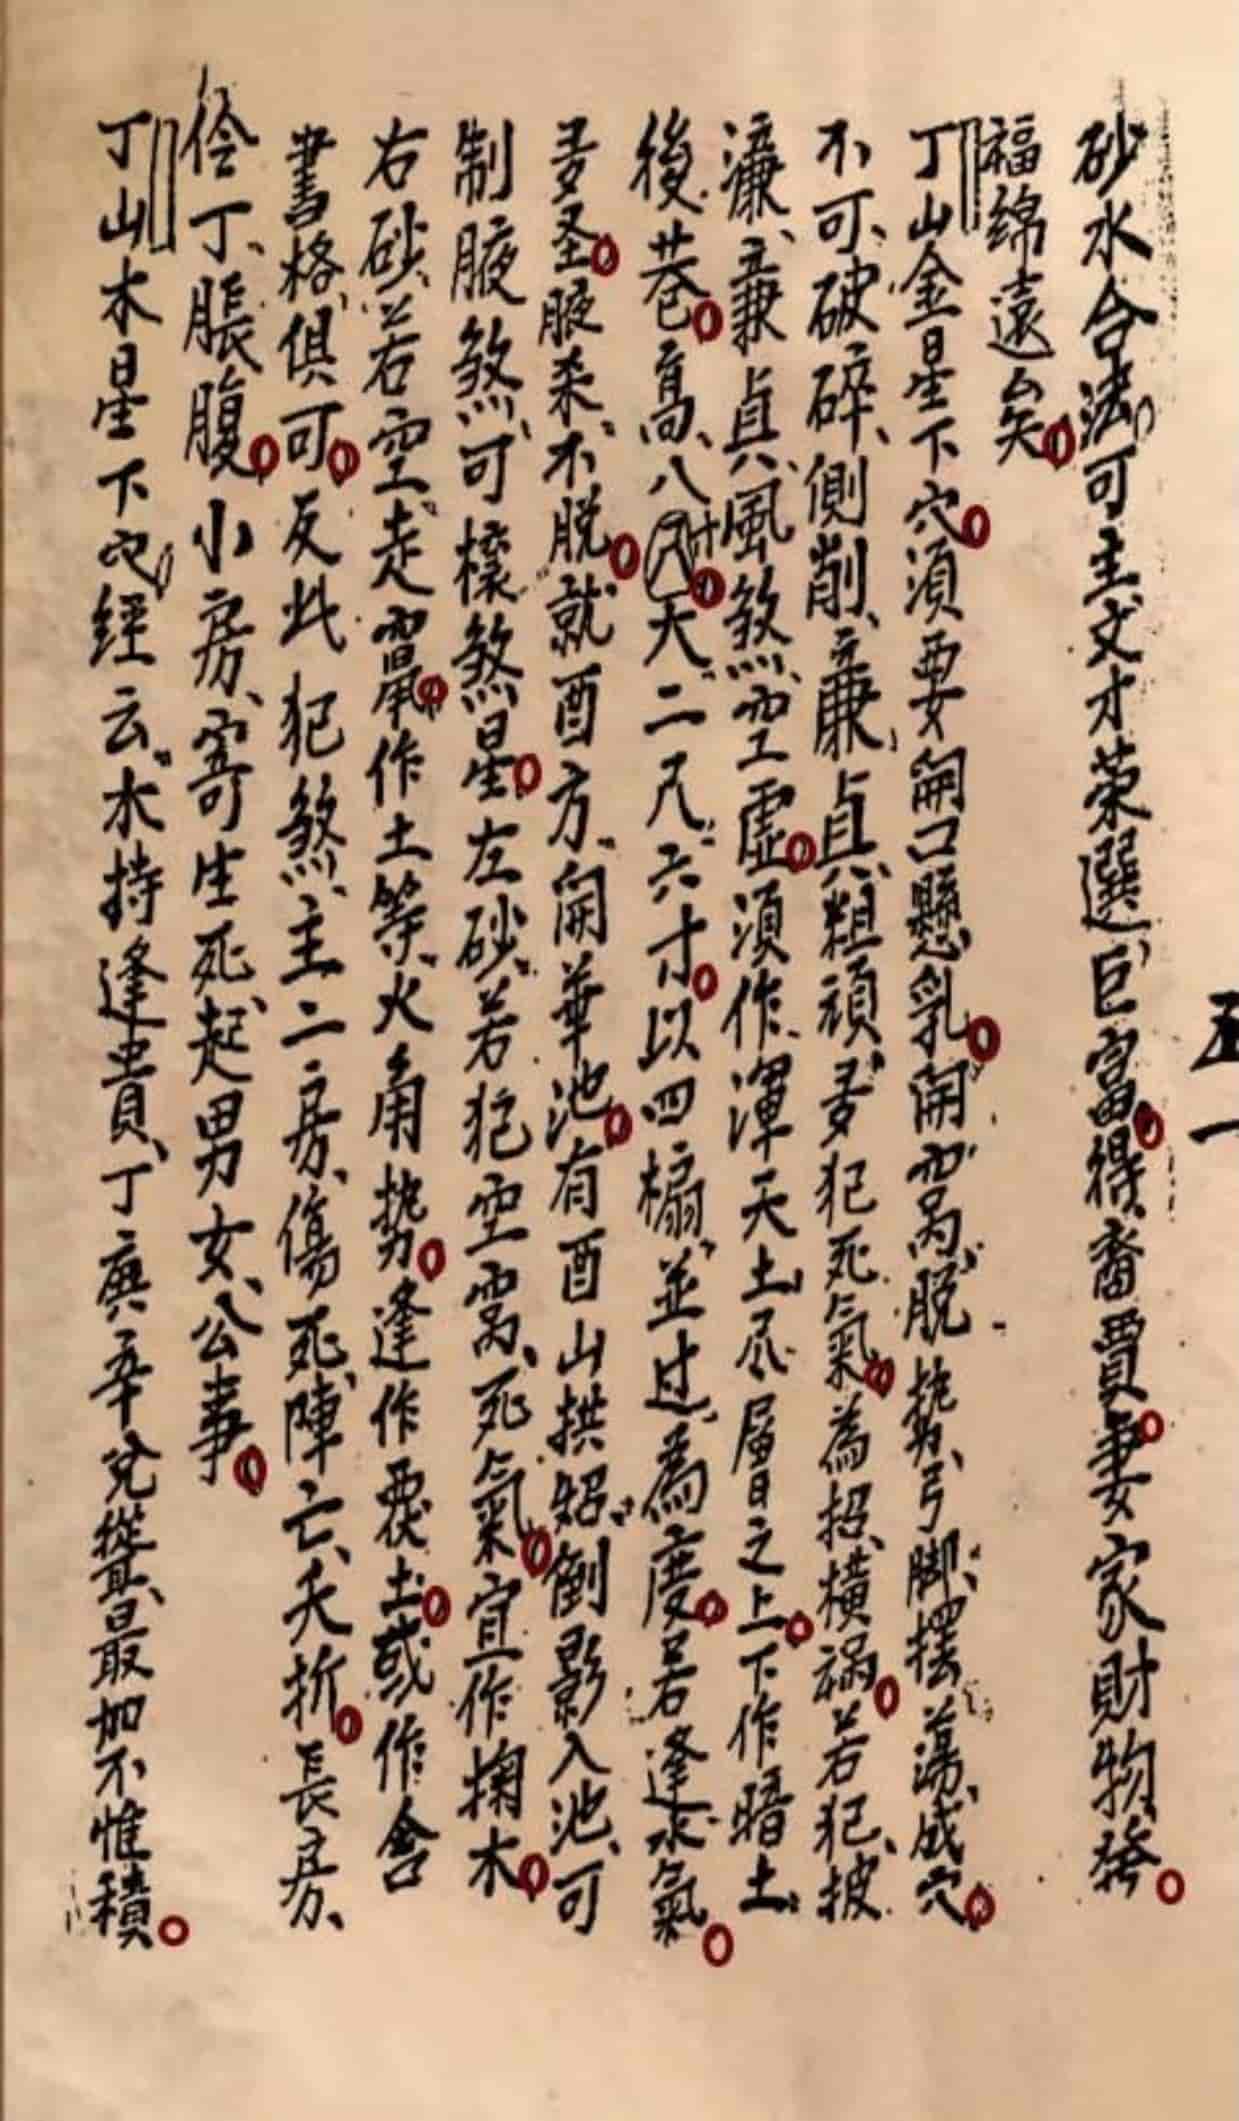 五一
砂水合法可主文才荣選巨富得裔賈妻家財物發
福绵遠矣
丁山金星下穴須要開口懸乳開窩脱勢弓脚擺蕩成穴
不可破碎側削亷貞粗頑多犯死氣為招橫禍若犯披
濂亷貞風煞空虛須作渾天土尽層之上下作暗土
後巷高八尺大二尺六寸以四榻並过為度若逢水氣
多圣腋杀不脱就酉方開華池有酉山拱照倒影入池可
制腋煞可樣煞星左砂若犯空窩死氣宜作掬木
右砂若空走竄作土等火角势逢作覆土或作含
書格俱可反此犯煞主二房傷死陣亡夭折長房
伶丁脹腹小房寄生死起男女公事
丁山木星下穴經云水持逢貴丁庚辛兌從其最加不惟積